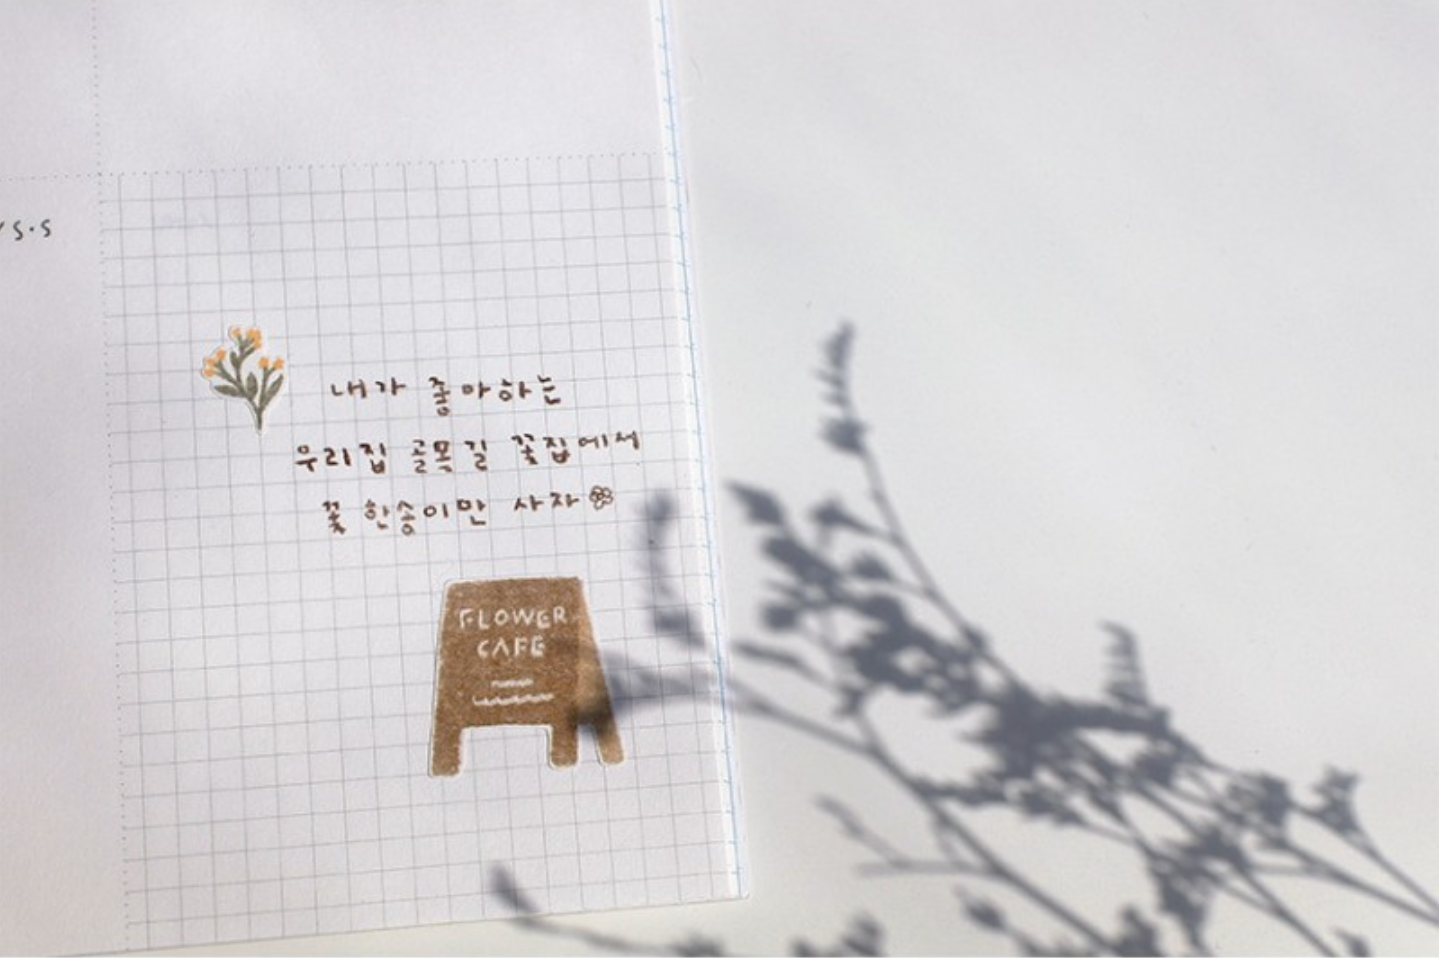 내가 좋아하는
우리집 골목길 꽃집에서
꽃 한송이만 사자
FLOWER
CAFE